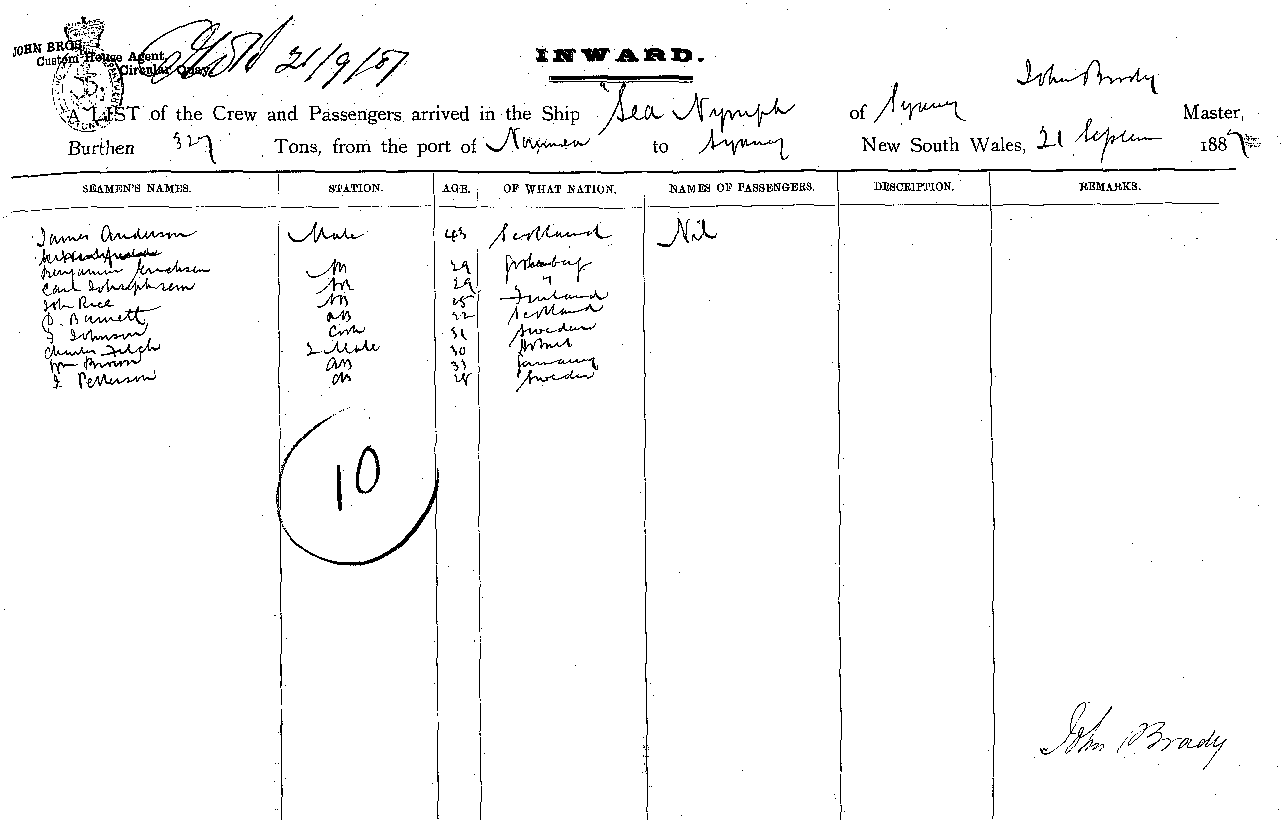 JOHN BROS.
Custom House Agent,
Circular Quay
21/9/87
INWARD.
John Brady
A LIST of the Crew and Passengers arrived in the Ship "Sea Nymph of Sydney Master,
Burthen 327 Tons, from the port of Noumea to Sydney New South Wales, 21 Septem 1887
SEAMEN'S NAMES. STATION. AGE. OF WHAT NATION. NAMES OF PASSENGERS. DESCRIPTION. REMARKS.
James Anderson Mate 43 Scotland Nil
Benjamin 29
Carl 29 "
John Rice 25 Finland
Barnett AB 22 Scotland
Johnson Cook 31 Sweden
Charles 2 Mate 30
Wm Brown AB 33 Germany
Petterson AB 28 Sweden
10
John Brady